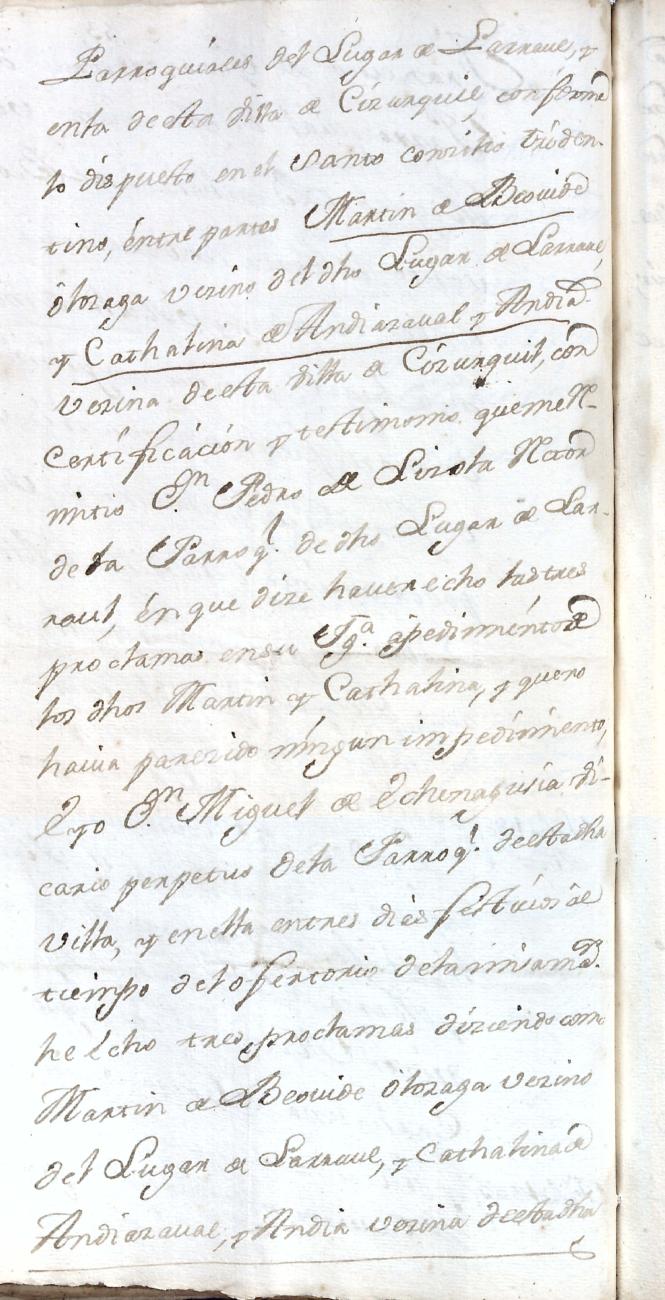 Parroquiales del Lugar de Larraul, y
enta de esta Villa de Cizurquil conforme
lo dispuesto en el Santo concilio triden-
tino, éntre partes Martin de Beovide
ôlozaga vezino del dho Lugar de Larraul,
y Cathalina de Andiazaval y Andia
vezina de esta Villa de Cizurquil, con
Certificácion y testimonio que me R-
mitio Dn Pedro de Lizola Rector
de la Parroql. de dho Lugar de Lar-
raul, én que dize haver echo las tres
proclamas en su Yga. â pedimiénto de
los dhos Martin y Cathalina, y que no
havia parezido ningun impedimento,
Èyo Dn Miguel de Echenagusia Vi-
cario perpetuo de la Parroql. de esta dha
Villa, y en ella en tres dias festivos âl
tiempo del ofertorio de la misa mr.
he echo tres proclamas diziendo como
Martin de Beovide ôlozaga vezino
del Lugar de Larraul, y Cathalina de
Andiazaval, y Andia vezina de esta dha